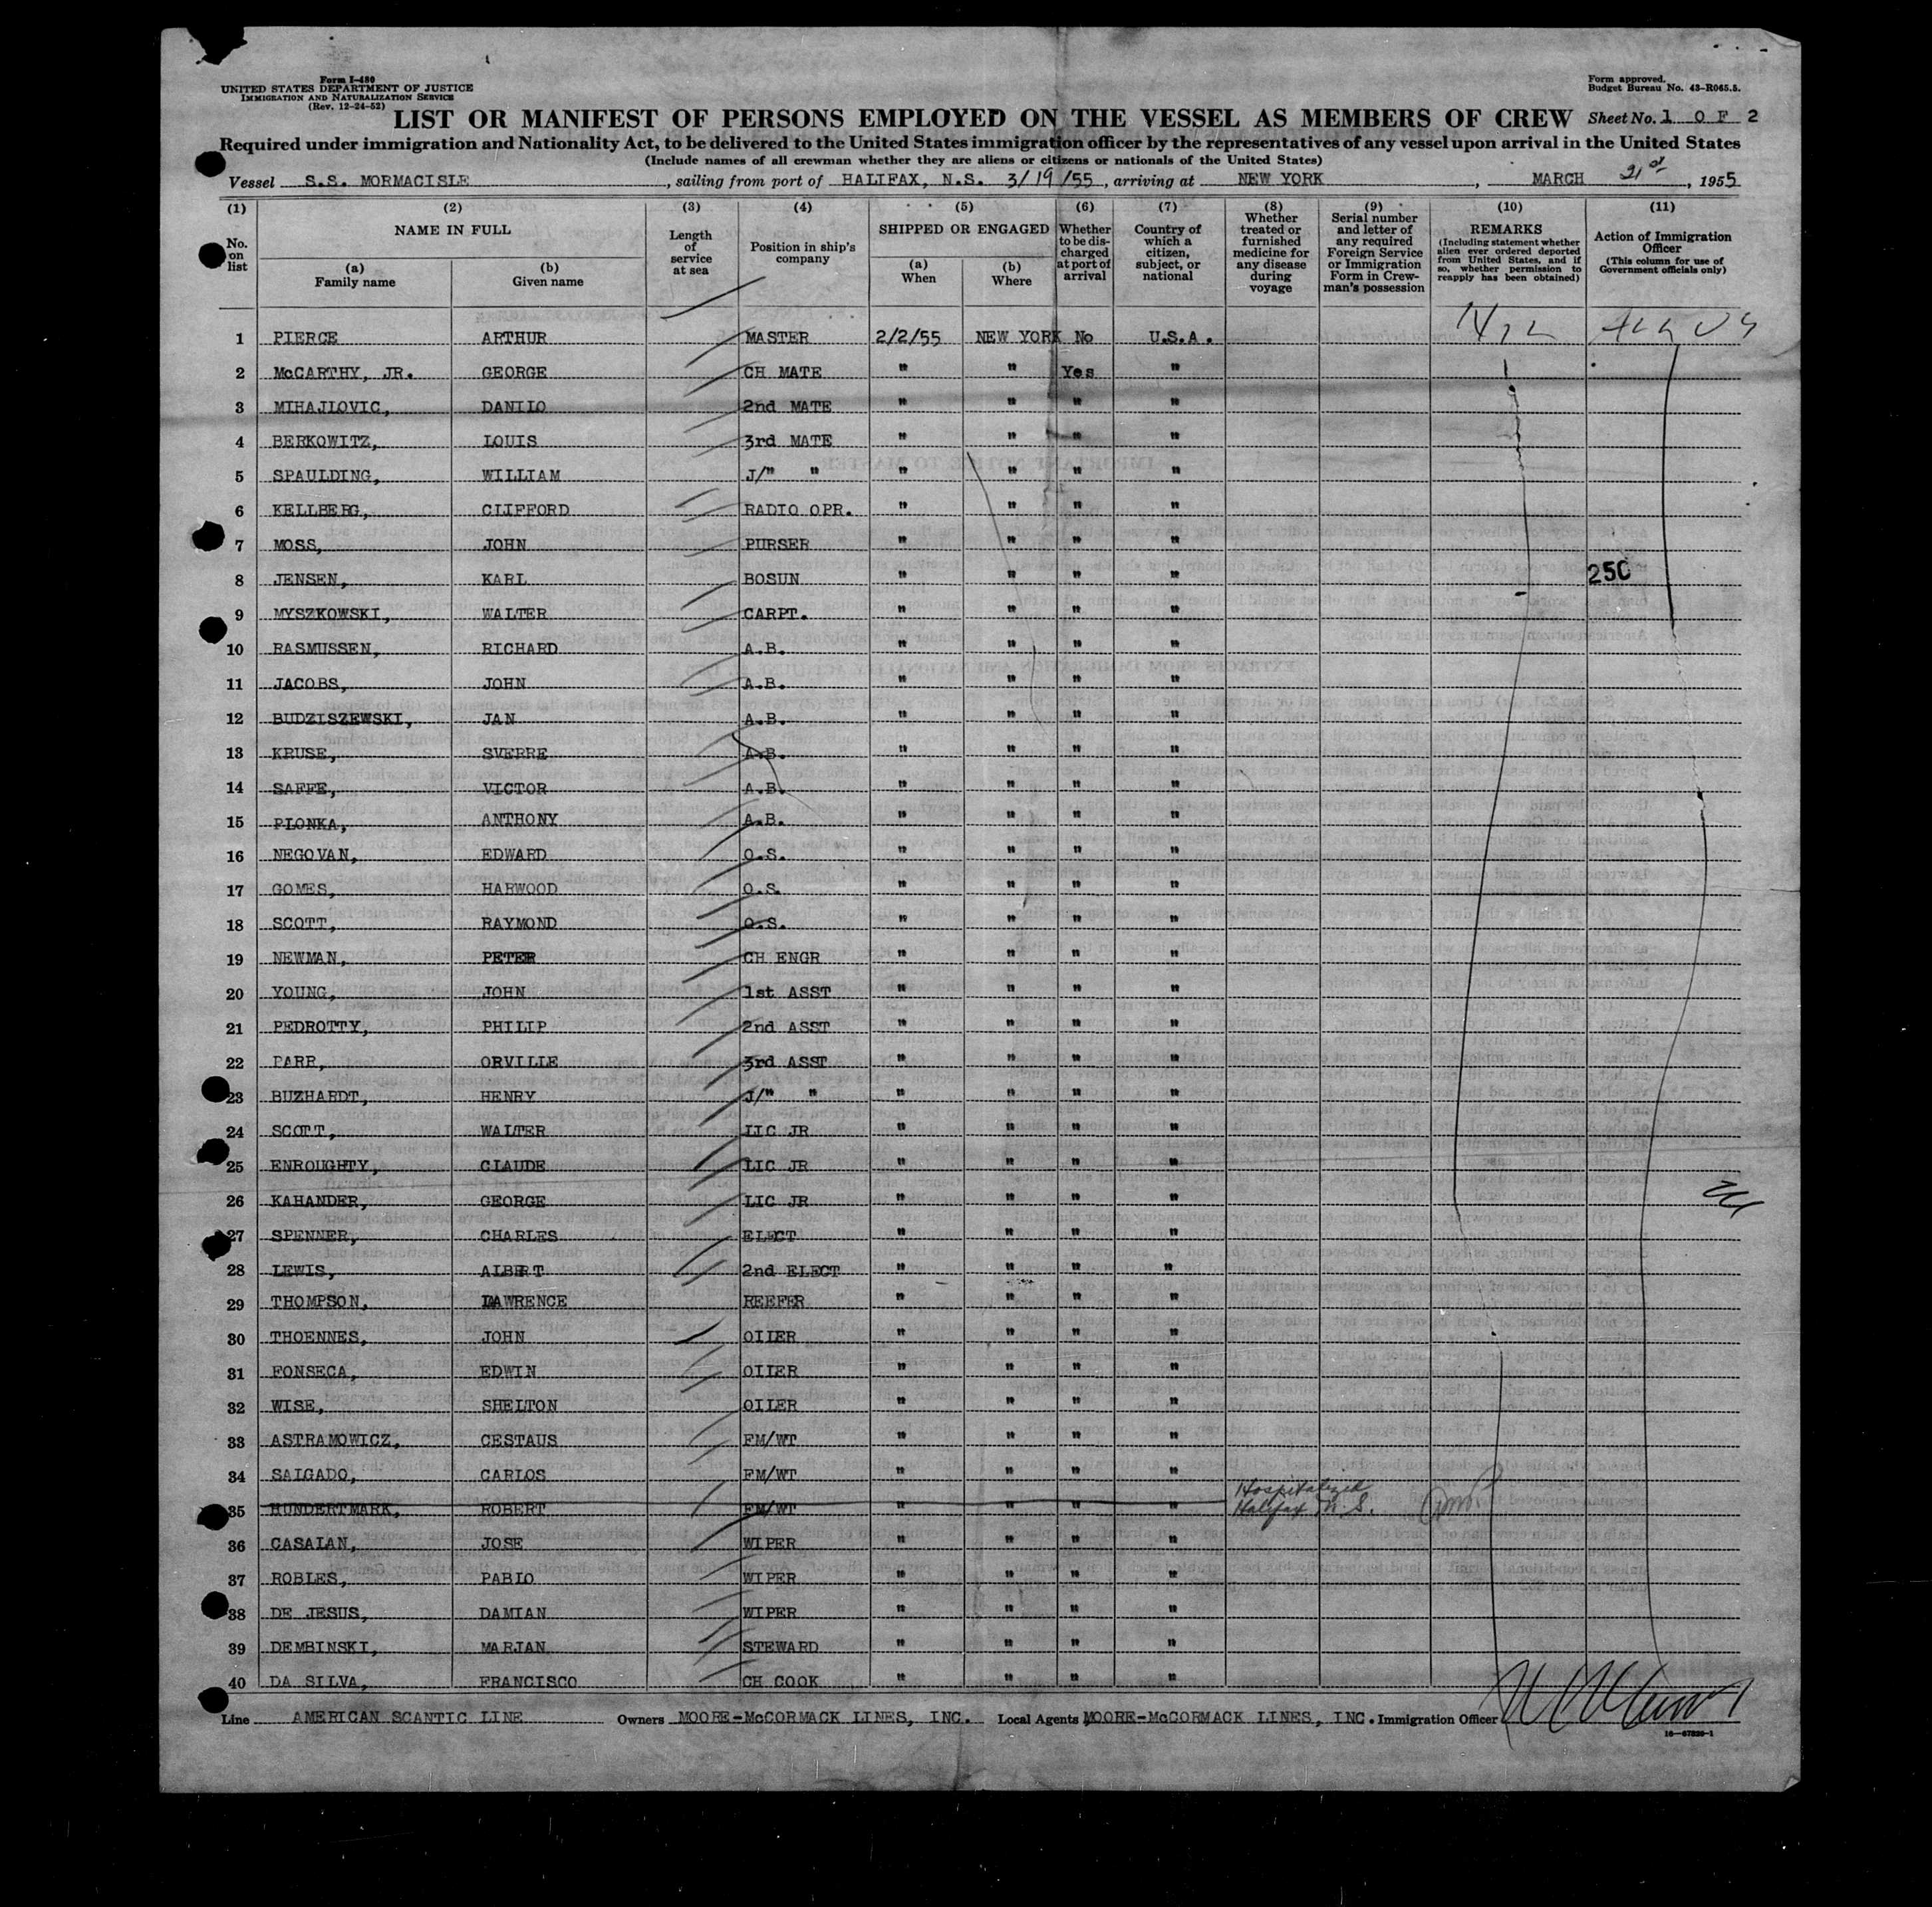 Form I-480
UNITED STATES DEPARTMENT OF JUSTICE
IMMIGRATION AND NATURALIZATION SERVICE
(Rev. 12-24-52)
Form approved.
Budget Bureau No. 43-R065.5.
LIST OR MANIFEST OF PERSONS EMPLOYED ON THE VESSEL AS MEMBERS OF CREW Sheet No. 1 OF 2
Required under immigration and Nationality Act, to be delivered to the United States immigration officer by the representatives of any vessel upon arrival in the United States
(Include names of all crewman whether they are aliens or citizens or nationals of the United States)
Vessel S.S. MORMACISLE, sailing from port of HALIFAX, N.S. 3/19/55, arriving at NEW YORK, MARCH 21st, 1955
(1) No. on list
(2) NAME IN FULL (a) Family name (b) Given name
(3) Length of service at sea
(4) Position in ship's company
(5) SHIPPED OR ENGAGED (a) When (b) Where
(6) Whether to be discharged at port of arrival
(7) Country of which a citizen, subject, or national
(8) Whether treated or furnished medicine for any disease during voyage
(9) Serial number and letter of any required Foreign Service or Immigration Form in Crewman's possession
(10) REMARKS (Including statement whether alien ever ordered deported from United States, and if so, whether permission to reapply has been obtained)
(11) Action of Immigration Officer (This column for use of Government officials only)
1 PIERCE ARTHUR MASTER 2/2/55 NEW YORK No U.S.A.
2 McCARTHY, JR. GEORGE CH MATE " " Yes "
3 MIHAJLOVIC, DANILO 2nd MATE " " " "
4 BERKOWITZ, LOUIS 3rd MATE " " " "
5 SPAULDING, WILLIAM J/" " " " " "
6 KELLBERG, CLIFFORD RADIO OPR. " " " "
7 MOSS, JOHN PURSER " " " "
8 JENSEN, KARL BOSUN " " " " 250
9 MYSZKOWSKI, WALTER CARPT. " " " "
10 RASMUSSEN, RICHARD A.B. " " " "
11 JACOBS, JOHN A.B. " " " "
12 BUDZISZEWSKI, JAN A.B. " " " "
13 KRUSE, SVERRE A.B. " " " "
14 SAFFE, VICTOR A.B. " " " "
15 PLONKA, ANTHONY A.B. " " " "
16 NEGOVAN, EDWARD O.S. " " " "
17 GOMES, HARWOOD O.S. " " " "
18 SCOTT, RAYMOND O.S. " " " "
19 NEWMAN, PETER CH ENGR " " " "
20 YOUNG, JOHN 1st ASST " " " "
21 PEDROTTY, PHILIP 2nd ASST " " " "
22 PARR, ORVILLE 3rd ASST " " " "
23 BUZHARDT, HENRY J/" " " " " "
24 SCOTT, WALTER LIC JR " " " "
25 ENROUGHTY, CLAUDE LIC JR " " " "
26 KAHANDER, GEORGE LIC JR " " " "
27 SPENNER, CHARLES ELECT " " " "
28 LEWIS, ALBERT 2nd ELECT " " " "
29 THOMPSON, LAWRENCE REEFER " " " "
30 THOENNES, JOHN OILER " " " "
31 FONSECA, EDWIN OILER " " " "
32 WISE, SHELTON OILER " " " "
33 ASTRAMOWICZ, CESTAUS FM/WT " " " "
34 SALGADO, CARLOS FM/WT " " " "
35 HUNDERTMARK, ROBERT FM/WT " " " " Hospitalized Halifax N.S.
36 CASALAN, JOSE WIPER " " " "
37 ROBLES, PABLO WIPER " " " "
38 DE JESUS, DAMIAN WIPER " " " "
39 DEMBINSKI, MARJAN STEWARD " " " "
40 DA SILVA, FRANCISCO CH COOK " " " "
Line AMERICAN SCANTIC LINE Owners MOORE-McCORMACK LINES, INC. Local Agents MOORE-McCORMACK LINES, INC. Immigration Officer